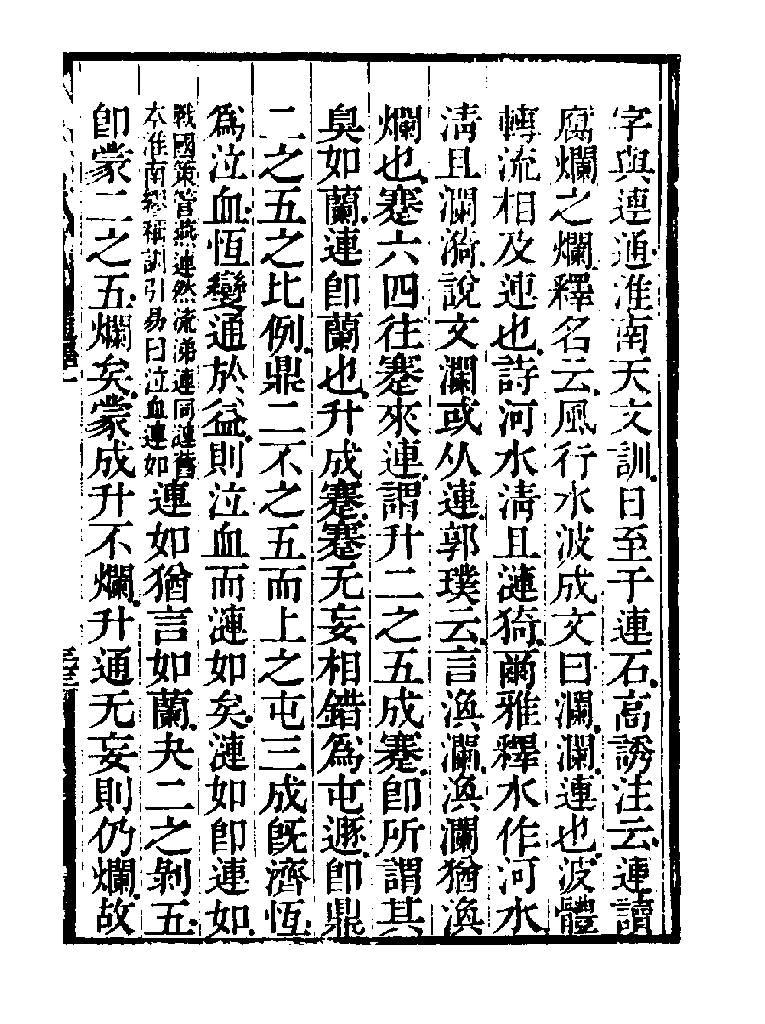 字與連通淮南天文訓日至于連石高誘注云連讀
腐爛之爛釋名云風行水波成文曰瀾瀾連也波體
轉流相及連也詩河水淸且漣猗爾雅釋水作河水
淸且瀾漪說文瀾或从連郭璞云言渙瀾渙瀾猶渙
爛也蹇六四往蹇來連謂升二之五成蹇卽所謂其
臭如蘭連卽蘭也升成蹇蹇无妄相錯爲屯遯卽鼎
二之五之比例鼎二不之五而上之屯三成旣濟恆
爲泣血恆變通於益則泣血而漣如矣漣如卽連如
戰國策管燕連然流涕連同漣舊
本淮南繆稱訓引易曰泣血連如
連如猶言如蘭夬二之剝五
卽蒙二之五爛矣蒙成升不爛升通无妄則仍爛故